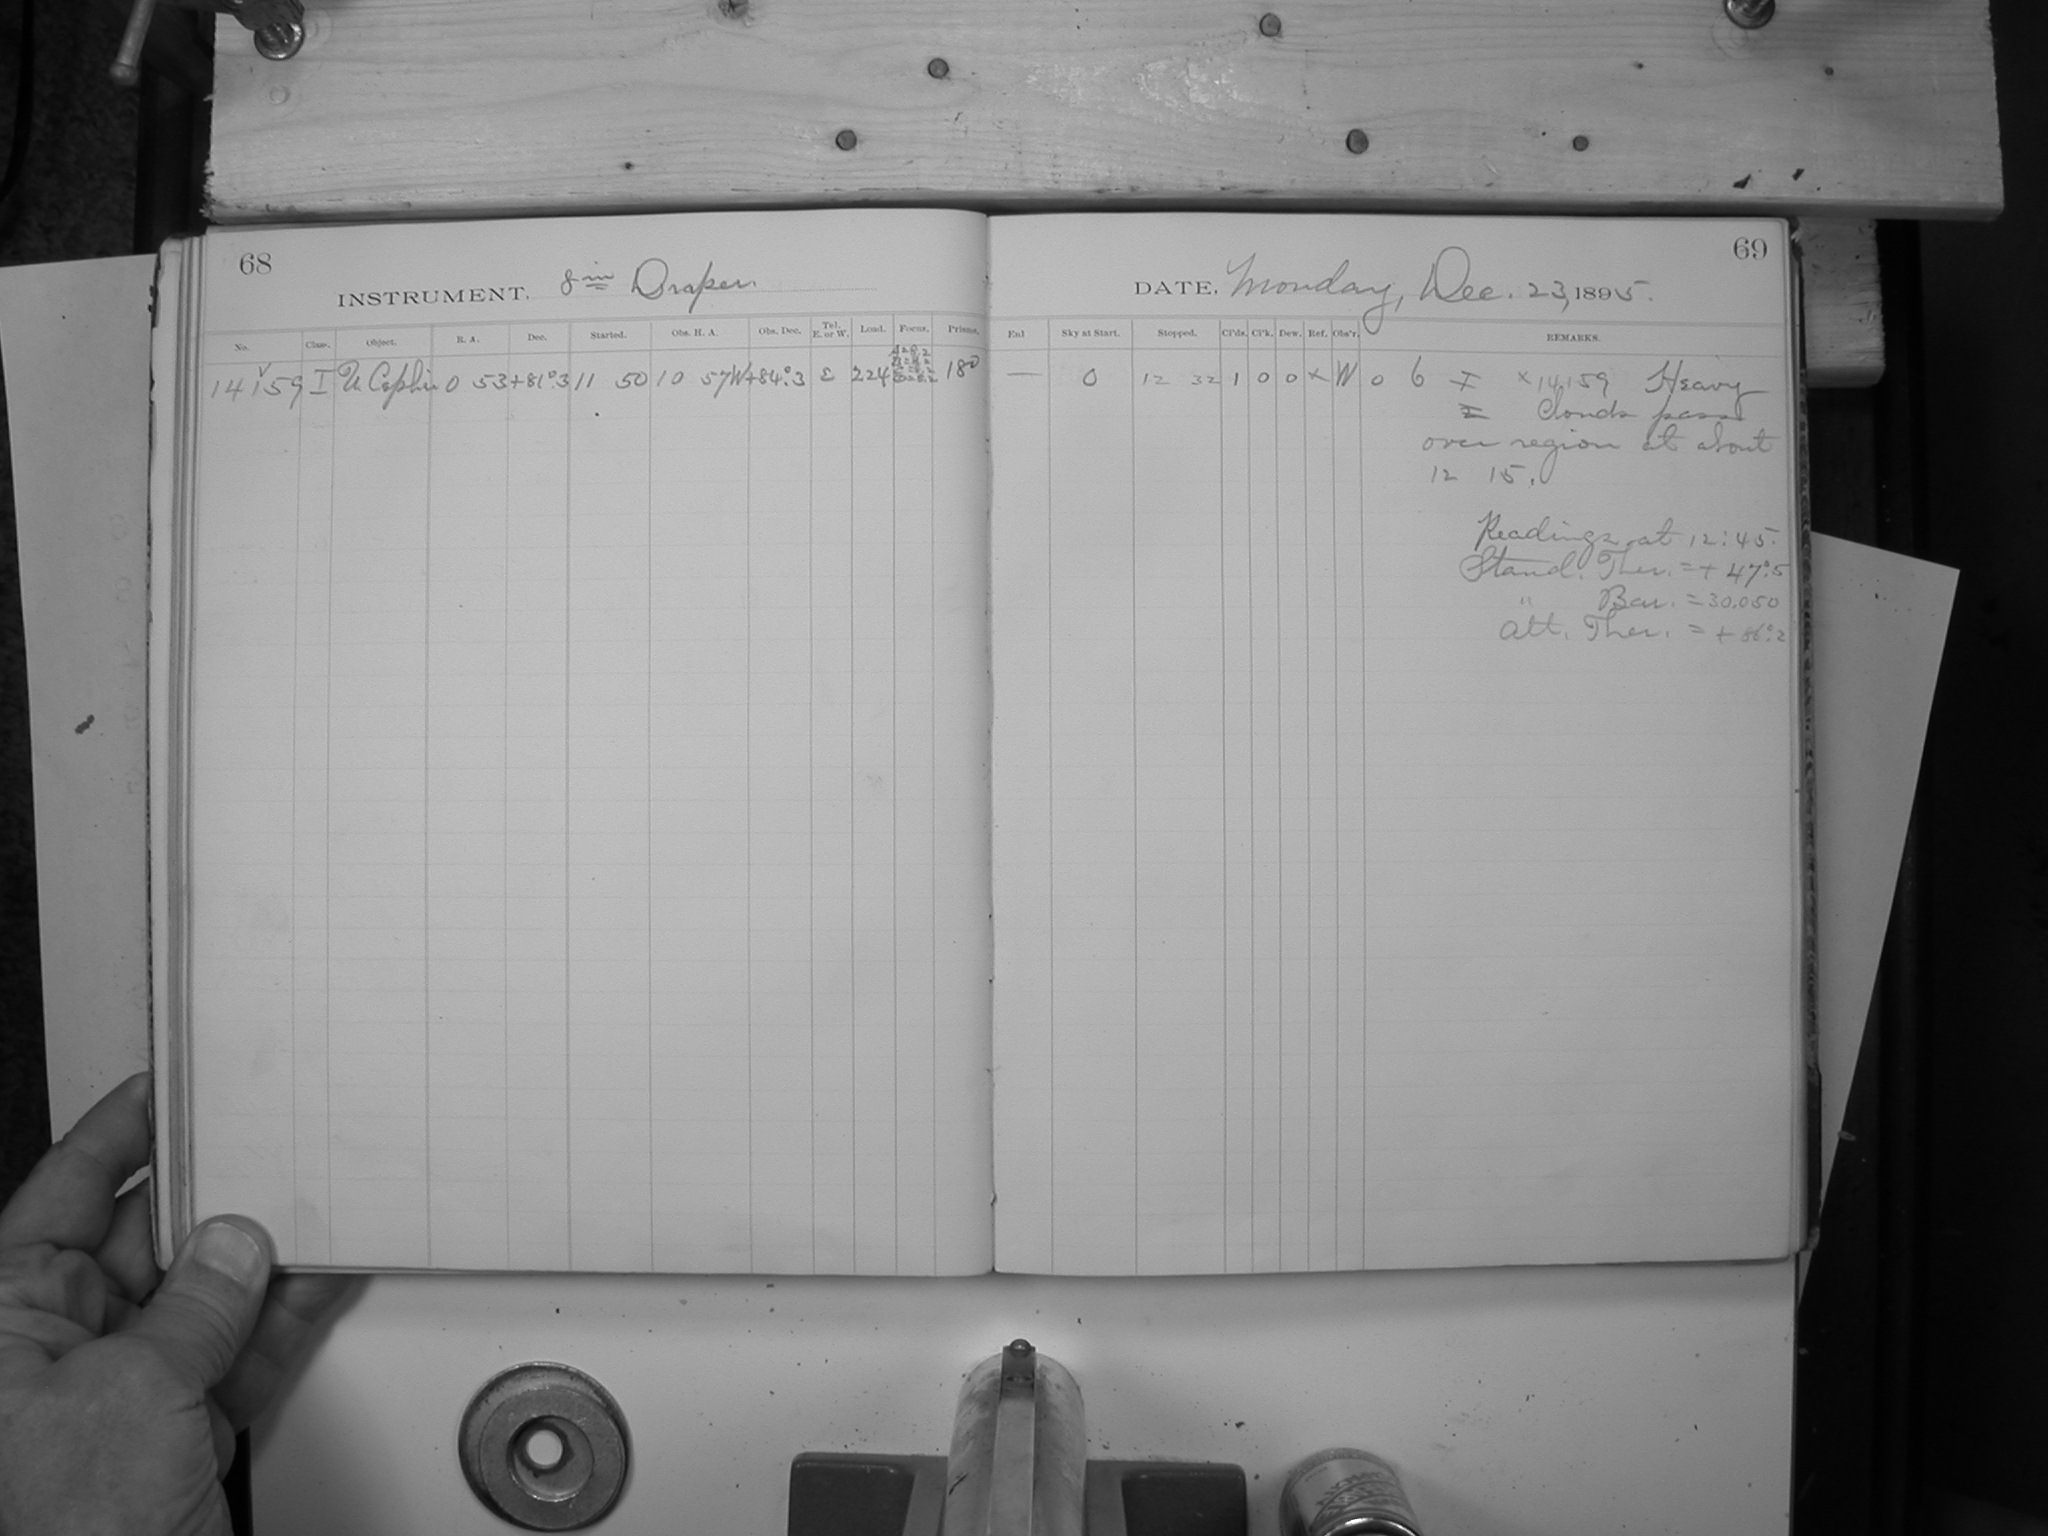 68
INSTRUMENT, 8in Draper.
No. Class. Object. R. A. Dec. Started. Obs. H. A. Obs. Dec. Tel. E. or W. Load. Focus. Prisms.
14159 I U Cephei 0 53 +81°.3 11 50 10 57W +84°.3 E 224 180
69
DATE, Monday, Dec. 23, 1895.
Exl Sky at Start. Stopped. Cl'ds. Cl'k. Dew. Ref. Obs'r. REMARKS.
— 0 12 32 1 0 0 × W 0 6 I ×14,159 Heavy
Clouds pass
over region at about
12 15.
Readings at 12:45.
Stand. Ther. = + 47°.5
" Bar. = 30.050
Att. Ther. = +